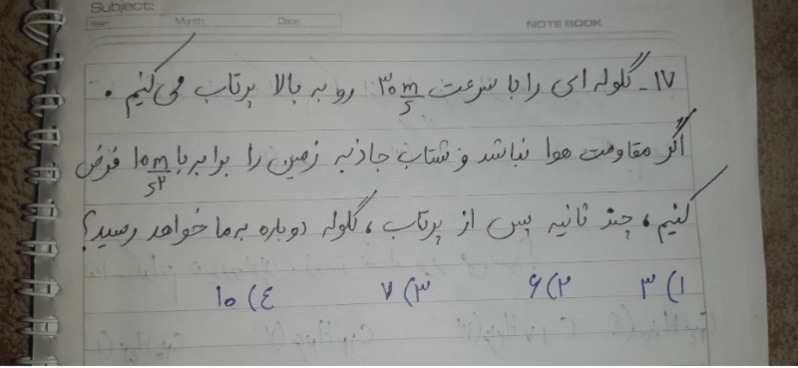 Subject:
Year: Month: Date: NOTE BOOK
۱۷- گلوله ای را با سرعت ۳۰ m/s رو به بالا پرتاب می کنیم.
اگر مقاومت هوا نباشد و شتاب جاذبه زمین را برابر با ۱۰ m/s۲ فرض
کنیم، چند ثانیه پس از پرتاب، گلوله دوباره به ما خواهد رسید؟
۱) ۳ ۲) ۶ ۳) ۷ ۴) ۱۰